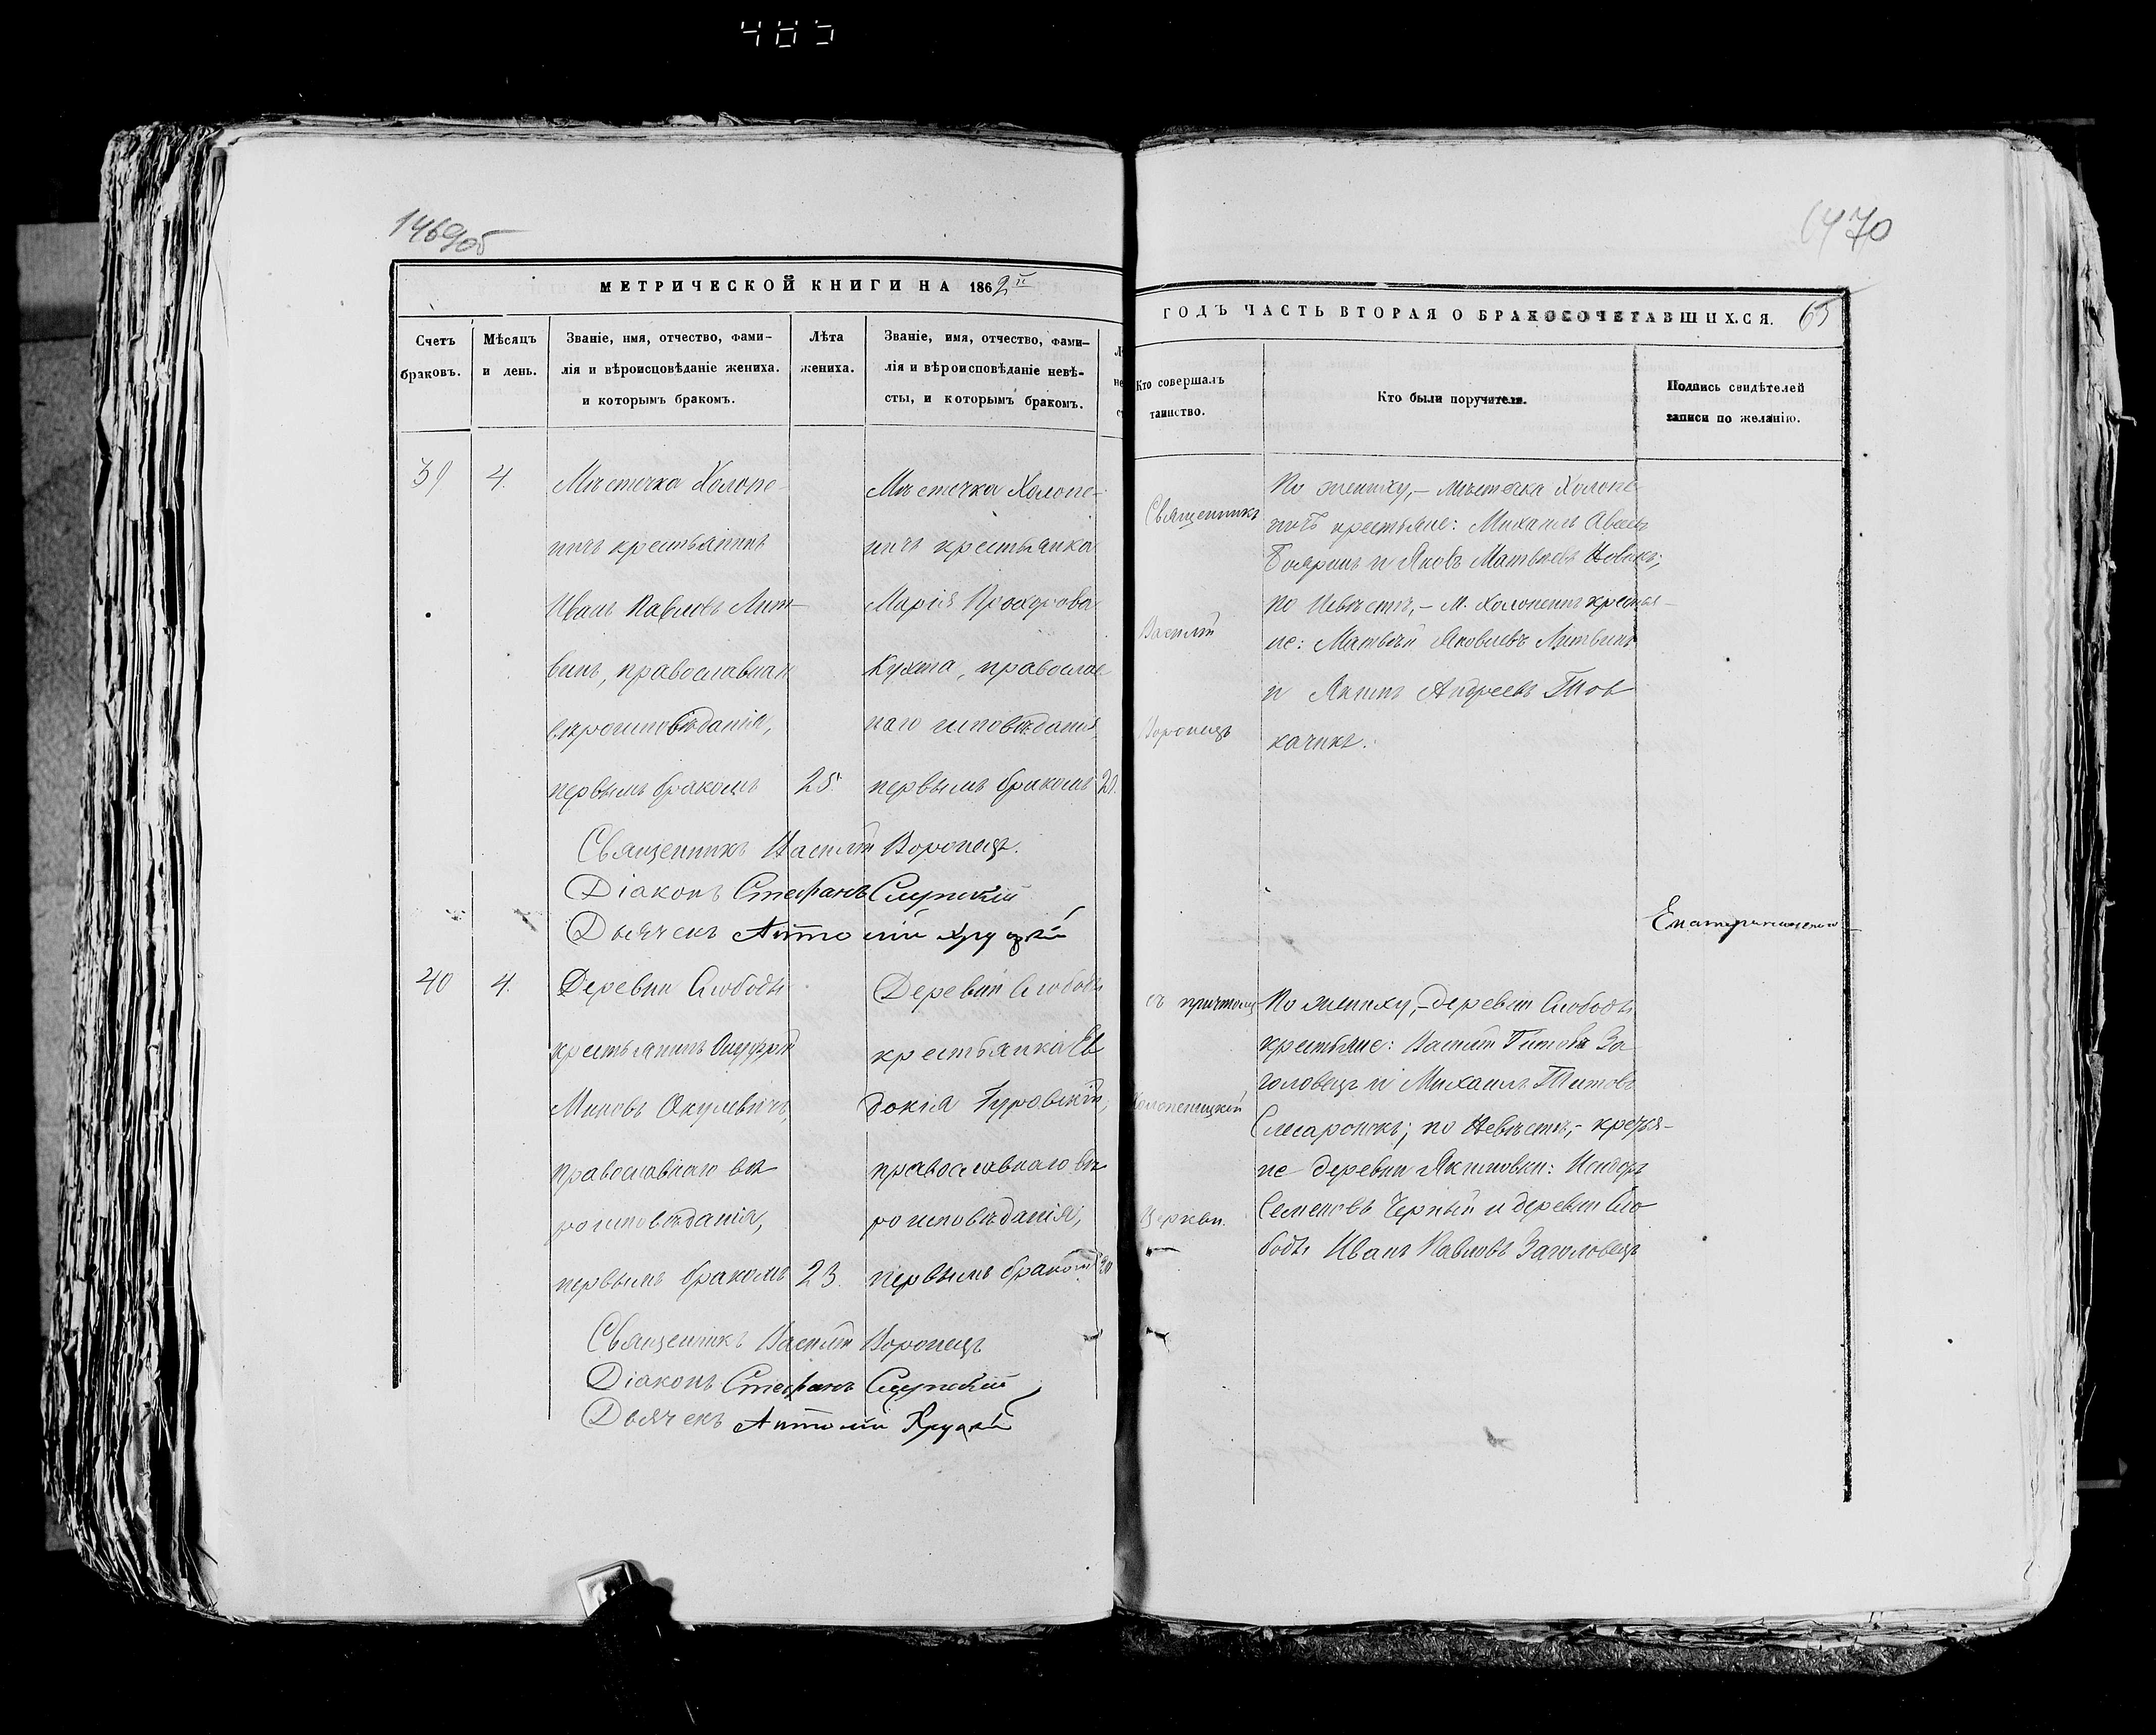 485
1469об
1470
МЕТРИЧЕСКОЙ КНИГИ НА 1862й
ГОДЪ ЧАСТЬ ВТОРАЯ О БРАКОСОЧЕТАВШИХСЯ. 65
Счетъ браковъ.
Мѣсяцъ и день.
Званіе, имя, отчество, фами-
лія и вѣроисповѣданіе жениха.
и которымъ бракомъ.
Лѣта
жениха.
Званіе, имя, отчество, фами-
лія и вѣроисповѣданіе невѣ-
сты, и которымъ бракомъ.
Кто совершалъ
таинство.
Кто были поручители.
Подпись свидѣтелей
записи по желанію.
39
4.
Мѣстечка Холопе-
ничъ крестьянинъ
Иванъ Павловъ Лит-
винъ, православнаго
вѣроисповѣданія,
первымъ бракомъ
25.
Мѣстечка Холопе-
ничъ крестьянка
Марія Прохорова
Кухта, православ
наго исповѣданія
первымъ бракомъ
Священникъ
Василій
Воронецъ
По жениху,- мѣстечка Холопе-
ничъ крестьяне: Михаилъ
Бояринъ и Яковъ Матвѣевъ Новикъ;
по Невѣстѣ,- М. Холопеничъ крестья-
не: Матвѣй Яковлевъ Литвинъ
и Якимъ Андреевъ Тов
качикъ.
Священникъ Василій Воронецъ.
Діаконъ Стефанъ Слупскій
Дьячекъ Антоній Хруцкій
40
4.
Деревни Слободы
крестьянинъ
Миновъ Акулевичъ,
православнаго вѣ
роисповѣданія,
первымъ бракомъ
23.
Деревни Слободы
крестьянка Ев
докія
православнаго вѣ
роисповѣданія,
первымъ бракомъ
20
съ причтомъ
Холопеницкой
Церкви.
По жениху,- деревни Слободы
крестьяне: Василій Титовъ За
головецъ и Михаилъ Титовъ
Слесаронокъ; по Невѣстѣ,- крестья-
не деревни Якимовки: Исидоръ
Семеновъ Черный и деревни Сло
боды Иванъ Павловъ Заголовецъ
Священникъ Василій Воронецъ
Діаконъ Стефанъ Слупскій
Дьячекъ Антоній Хруцкій